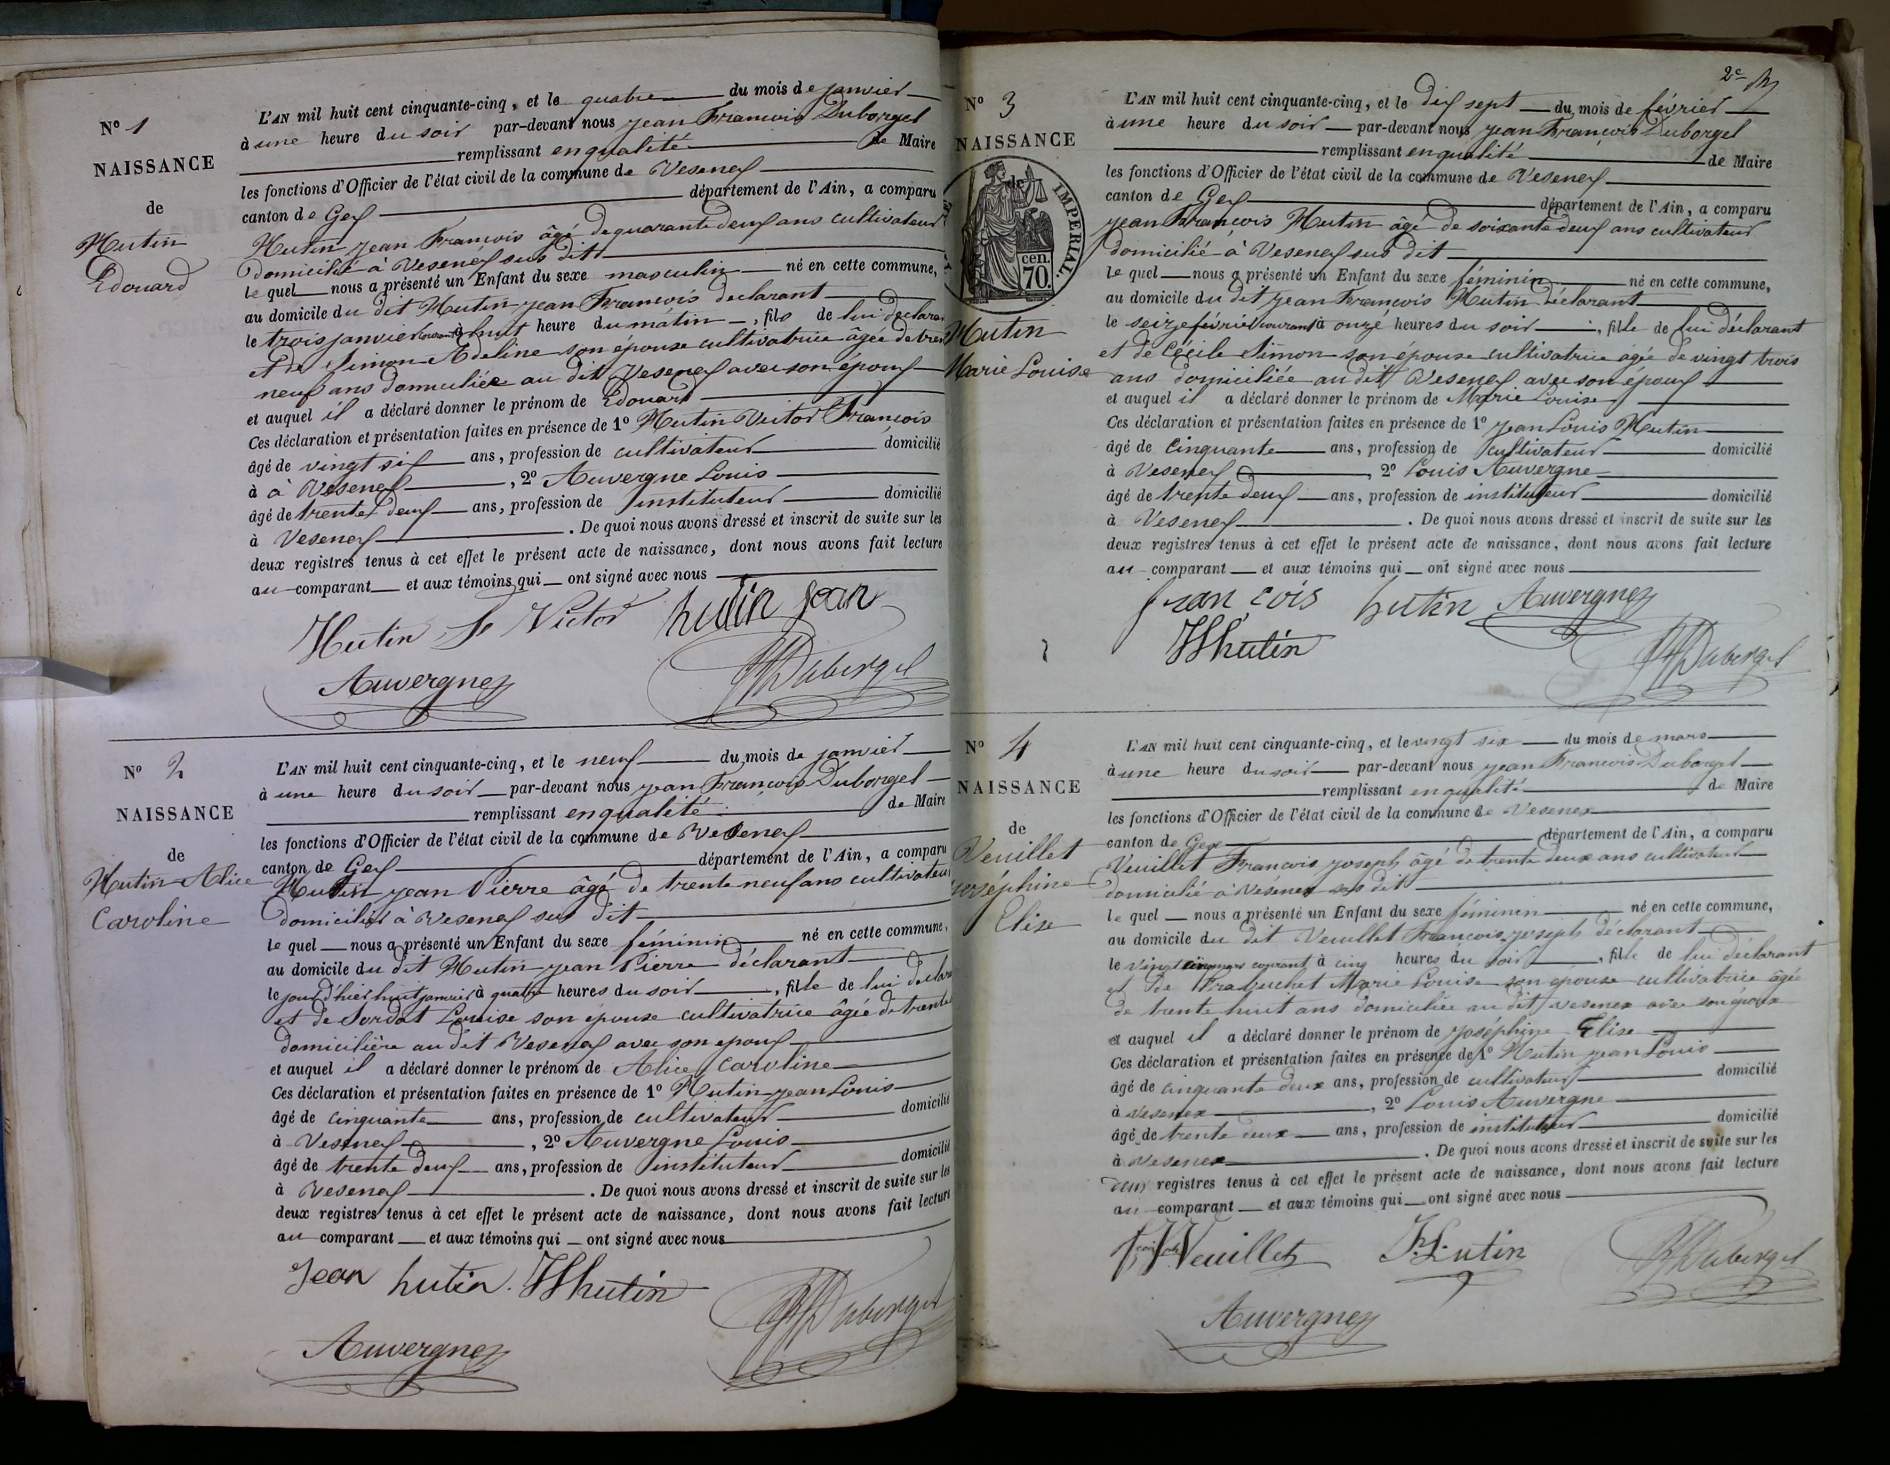 N° 1
NAISSANCE
de
Hutin
Edouard
L'AN mil huit cent cinquante-cinq, et le quatre du mois de janvier
à une heure du soir par-devant nous jean François Duborgel
remplissant en qualité de Maire
les fonctions d'Officier de l'état civil de la commune de Vesenex
canton de Gex département de l'Ain, a comparu
Hutin jean François âgé de quarante deux ans cultivateur
domicilié à Vesenex sus dit
le quel nous a présenté un Enfant du sexe masculin né en cette commune,
au domicile du dit Hutin jean François declarant
le trois janvier courant à huit heure du matin, fils de lui declara
et de Simon Adeline son épouse cultivatrice âgée de tren
neuf ans domiciliée au dit Vesenex avec son époux
et auquel il a déclaré donner le prénom de Edouard
Ces déclaration et présentation faites en présence de 1° Hutin Victor François
âgé de vingt six ans, profession de cultivateur domicilié
à à Vesenex, 2° Auvergne Louis
âgé de trente deux ans, profession de instituteur domicilié
à Vesenex. De quoi nous avons dressé et inscrit de suite sur les
deux registres tenus à cet effet le présent acte de naissance, dont nous avons fait lecture
au comparant et aux témoins qui ont signé avec nous
Hutin Victor hutin jean
Auvergne Duborgel
N° 2
NAISSANCE
de
Hutin Alice
Caroline
L'AN mil huit cent cinquante-cinq, et le neuf du mois de janvier
à une heure du soir par-devant nous jean François Duborgel
remplissant en qualité de Maire
les fonctions d'Officier de l'état civil de la commune de Vesenex
canton de Gex département de l'Ain, a comparu
Hutin jean Pierre âgé de trente neuf ans cultivateur
domicilié à Vesenex sus dit
le quel nous a présenté un Enfant du sexe féminin né en cette commune,
au domicile du dit Hutin jean Pierre déclarant
le jour d'hier huit janvier à quatre heures du soir, fille de lui declara
et de Sordat Louise son épouse cultivatrice âgée de trente
domicilière au dit Vesenex avec son epoux
et auquel il a déclaré donner le prénom de Alice Caroline
Ces déclaration et présentation faites en présence de 1° Hutin jean Louis
âgé de cinquante ans, profession de cultivateur domicilié
à Vesenex, 2° Auvergne Louis
âgé de trente deux ans, profession de instituteur domicilié
à Vesenex. De quoi nous avons dressé et inscrit de suite sur les
deux registres tenus à cet effet le présent acte de naissance, dont nous avons fait lecture
au comparant et aux témoins qui ont signé avec nous
jean hutin. hutin
Duborgel
Auvergne
2e
N° 3
NAISSANCE
IMPERIAL.
cen.
70.
Hutin
Marie Louise
L'AN mil huit cent cinquante-cinq, et le dix sept du mois de février
à une heure du soir par-devant nous jean François Duborgel
remplissant en qualité de Maire
les fonctions d'Officier de l'état civil de la commune de Vesenex
canton de Gex département de l'Ain, a comparu
jean François Hutin âgé de soixante deux ans cultivateur
domicilié à Vesenex sus dit
le quel nous a présenté un Enfant du sexe féminin né en cette commune,
au domicile du dit jean François Hutin déclarant
le seize février courant à onze heures du soir, fille de lui déclarant
et de Cécile Simon son épouse cultivatrice âgée de vingt trois
ans domiciliée au dit Vesenex avec son époux
et auquel il a déclaré donner le prénom de Marie Louise
Ces déclaration et présentation faites en présence de 1° jean Louis Hutin
âgé de cinquante ans, profession de cultivateur domicilié
à Vesenex, 2° Louis Auvergne
âgé de trente deux ans, profession de instituteur domicilié
à Vesenex. De quoi nous avons dressé et inscrit de suite sur les
deux registres tenus à cet effet le présent acte de naissance, dont nous avons fait lecture
au comparant et aux témoins qui ont signé avec nous
françois hutin Auvergne
hutin Duborgel
N° 4
NAISSANCE
de
Veuillet
joséphine
Elise
L'AN mil huit cent cinquante-cinq, et le vingt six du mois de mars
à une heure du soir par-devant nous jean François Duborgel
remplissant en qualité de Maire
les fonctions d'Officier de l'état civil de la commune de Vesenex
canton de Gex département de l'Ain, a comparu
Veuillet François joseph âgé de trente deux ans cultivateur
domicilié à Vésenex sus dit
le quel nous a présenté un Enfant du sexe féminin né en cette commune,
au domicile du dit Veuillet François joseph déclarant
le vingt cinq mars courant à cinq heures du soir, fille de lui déclarant
et de Marie Louise son épouse cultivatrice âgée
de trente huit ans domiciliée au dit vesenex avec son époux
et auquel il a déclaré donner le prénom de joséphine Elise
Ces déclaration et présentation faites en présence de 1° Hutin jean Louis
âgé de cinquante deux ans, profession de cultivateur domicilié
à vesenex, 2° Louis Auvergne
âgé de trente deux ans, profession de instituteur domicilié
à vesenex. De quoi nous avons dressé et inscrit de suite sur les
deux registres tenus à cet effet le présent acte de naissance, dont nous avons fait lecture
au comparant et aux témoins qui ont signé avec nous
Veuillet Hutin Duborgel
Auvergne